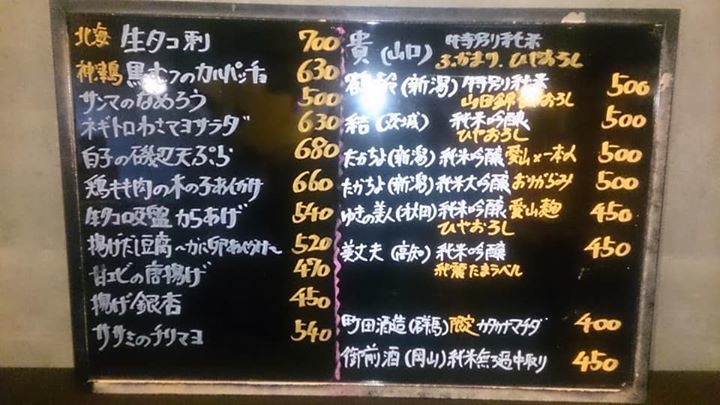 北海 生タコ刺 700
神津 黒ムツのカルパッチョ 630
サンマのなめろう 500
ネギトロわさマヨサラダ 630
白子の磯辺天ぷら 680
鶏もも肉の木の子あんかけ 660
生タコ吸盤 からあげ 540
揚げだし豆腐〜かに卵あんかけ〜 520
甘エビの唐揚げ 470
揚げ銀杏 450
ササミのチリマヨ 540
貴 (山口) 特別純米
ふかまり、ひやおろし
鶴齢 (新潟) 特別純米 500
山田錦 ひやおろし
結 (茨城) 純米吟醸 500
ひやおろし
たかちよ (新潟) 純米吟醸 愛山×一本〆 500
たかちよ (新潟) 純米大吟醸 おりがらみ 500
ゆきの美人 (秋田) 純米吟醸 愛山麹 450
ひやおろし
美丈夫 (高知) 純米吟醸 450
秋麗 たまラベル
町田酒造 (群馬) 限定 カタカナマチダ 400
御前酒 (岡山) 純米無ろ過中取り 450